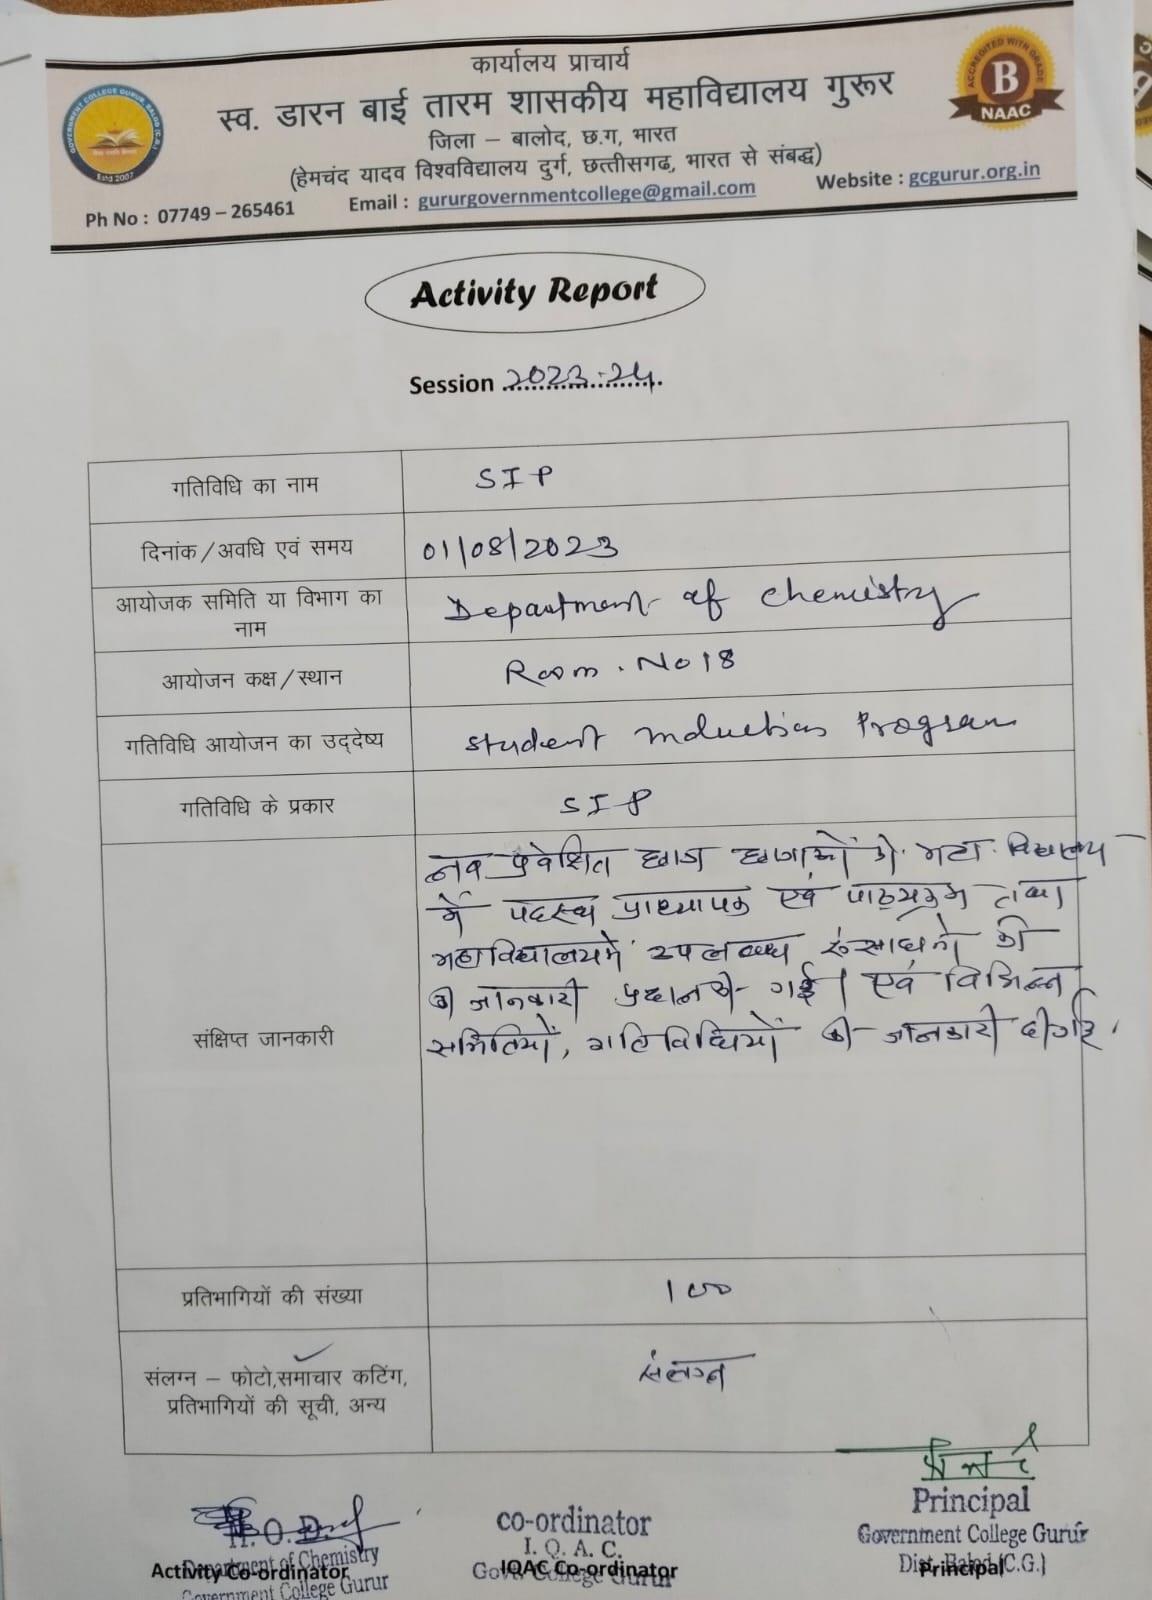 कार्यालय प्राचार्य
स्व. डारन बाई तारम शासकीय महाविद्यालय गुरूर
जिला – बालोद, छ.ग, भारत
(हेमचंद यादव विश्वविद्यालय दुर्ग, छत्तीसगढ, भारत से संबद्ध)
Ph No : 07749 – 265461 Email : gururgovernmentcollege@gmail.com Website : gcgurur.org.in
GOVERNMENT COLLEGE GURUR, BALOD (C.G.)
Estd 2007
ACCREDITED WITH GRADE
B
NAAC
Activity Report
Session 2023-24
गतिविधि का नाम SIP
दिनांक/अवधि एवं समय 01/08/2023
आयोजक समिति या विभाग का
नाम
Department of chemistry
आयोजन कक्ष/स्थान Room. No 18
गतिविधि आयोजन का उद्देष्य student Induction Program
गतिविधि के प्रकार SIP
संक्षिप्त जानकारी
नव प्रवेशित छात्र छात्राओं को महाविद्यालय
में पदस्थ प्राध्यापक एवं पाठ्यक्रम तथा
महाविद्यालय में उपलब्ध संसाधनो की
की जानकारी प्रदान की गई। एवं विभिन्न
समितियों, गतिविधियों की जानकारी दी गई।
प्रतिभागियों की संख्या 100
संलग्न – फोटो,समाचार कटिंग,
प्रतिभागियों की सूची, अन्य
संलग्न
H.O.D.
Department of Chemistry
Government College Gurur
Activity Co-ordinator
co-ordinator
I. Q. A. C.
Govt. College Gurur
IQAC Co-ordinator
Principal
Government College Gurur
Dist. Balod (C.G.)
Principal